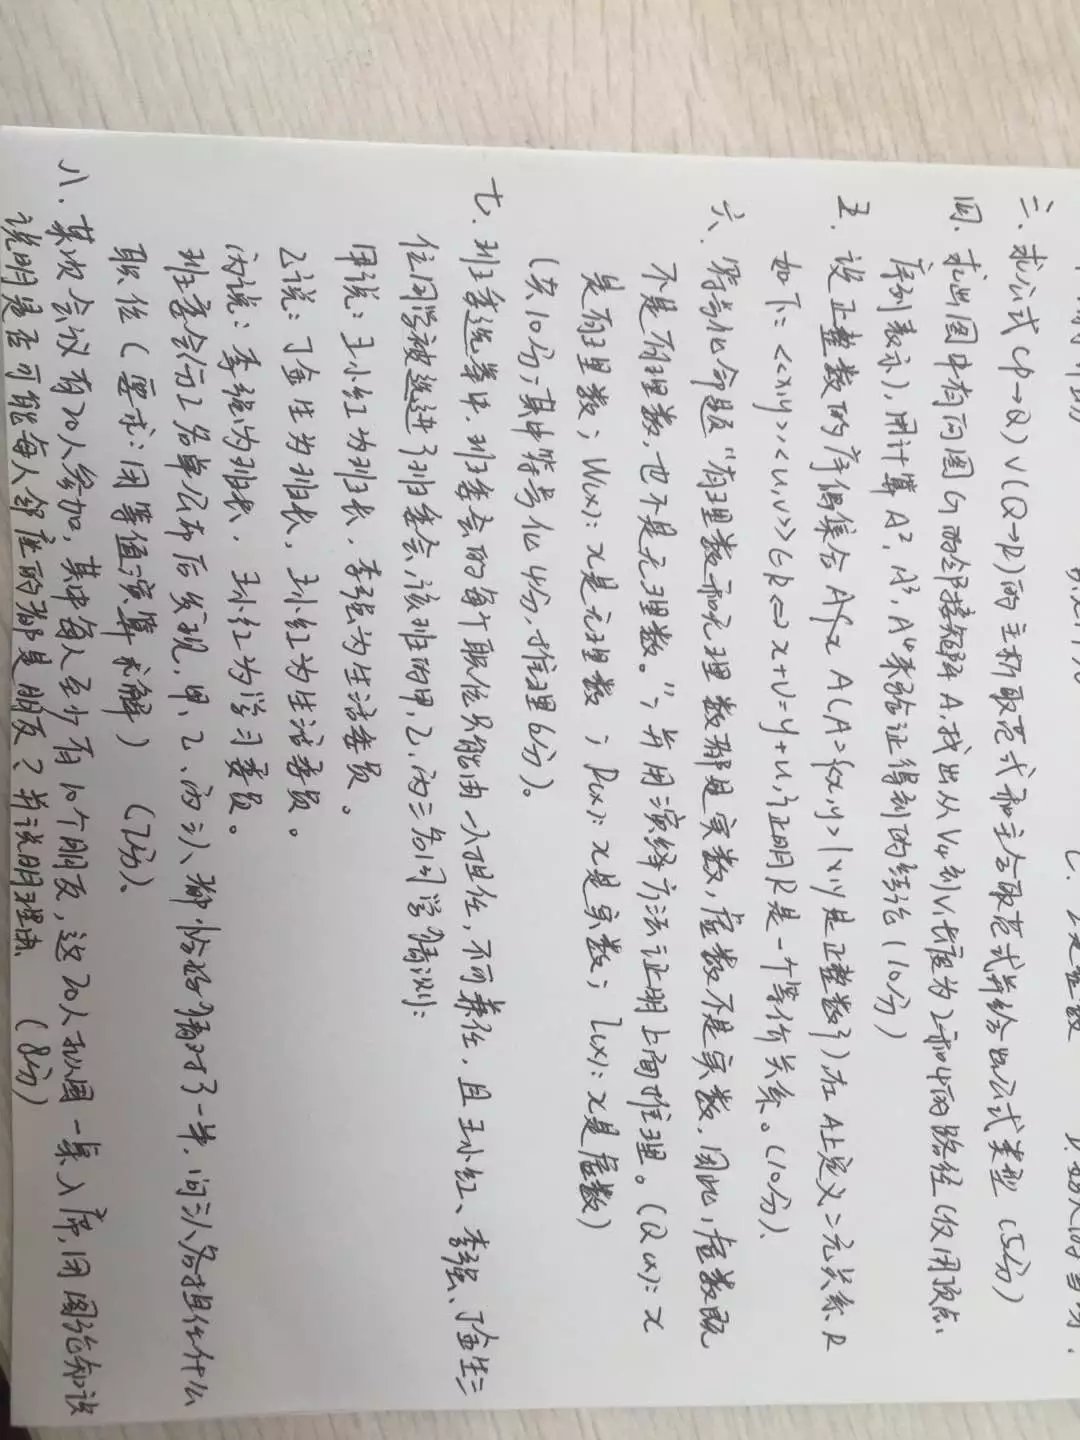 三. 求公式(P→Q)∨(Q→R)的主析取范式和主合取范式并给出公式类型 (5分)
四. 求出图中有向图G的邻接矩阵A,找出从V4到V1长度为2和4的路径(仅用顶点
序列表示),用计算A²,A³,A⁴来验证得到的结论(10分)
五. 设正整数的序偶集合A A(A={<x,y>|x,y是正整数}),在A上定义二元关系R
如下:<<x,y>,<u,v>>∈R⇔x+v=y+u,证明R是一个等价关系。(10分).
六. 符号化命题“有理数和无理数都是实数,虚数不是实数.因此,虚数既
不是有理数,也不是无理数。”;并用演绎方法证明上面推理。(Q(x):x
是有理数;W(x):x是无理数;R(x):x是实数;I(x):x是虚数)
(共10分;其中符号化4分,推理6分)。
七. 班委选举中,班委会的每个职位只能由一人担任,不可兼任,且王小红、李强、丁金生三
位同学被选进了班委会,该班的甲,乙,丙三名同学猜测:
甲说:王小红为班长,李强为生活委员。
乙说:丁金生为班长,王小红为生活委员。
丙说:李强为班长,王小红为学习委员。
班委会分工名单公布后发现,甲、乙、丙三人都恰好猜对了一半.问三人各担任什么
职位(要求:用等值演算求解) (7分).
八. 某次会议有20人参加,其中每人至少有10个朋友,这20人拟围一桌入席,用图论知识
说明是否可能每人邻座的都是朋友?并说明理由. (8分)